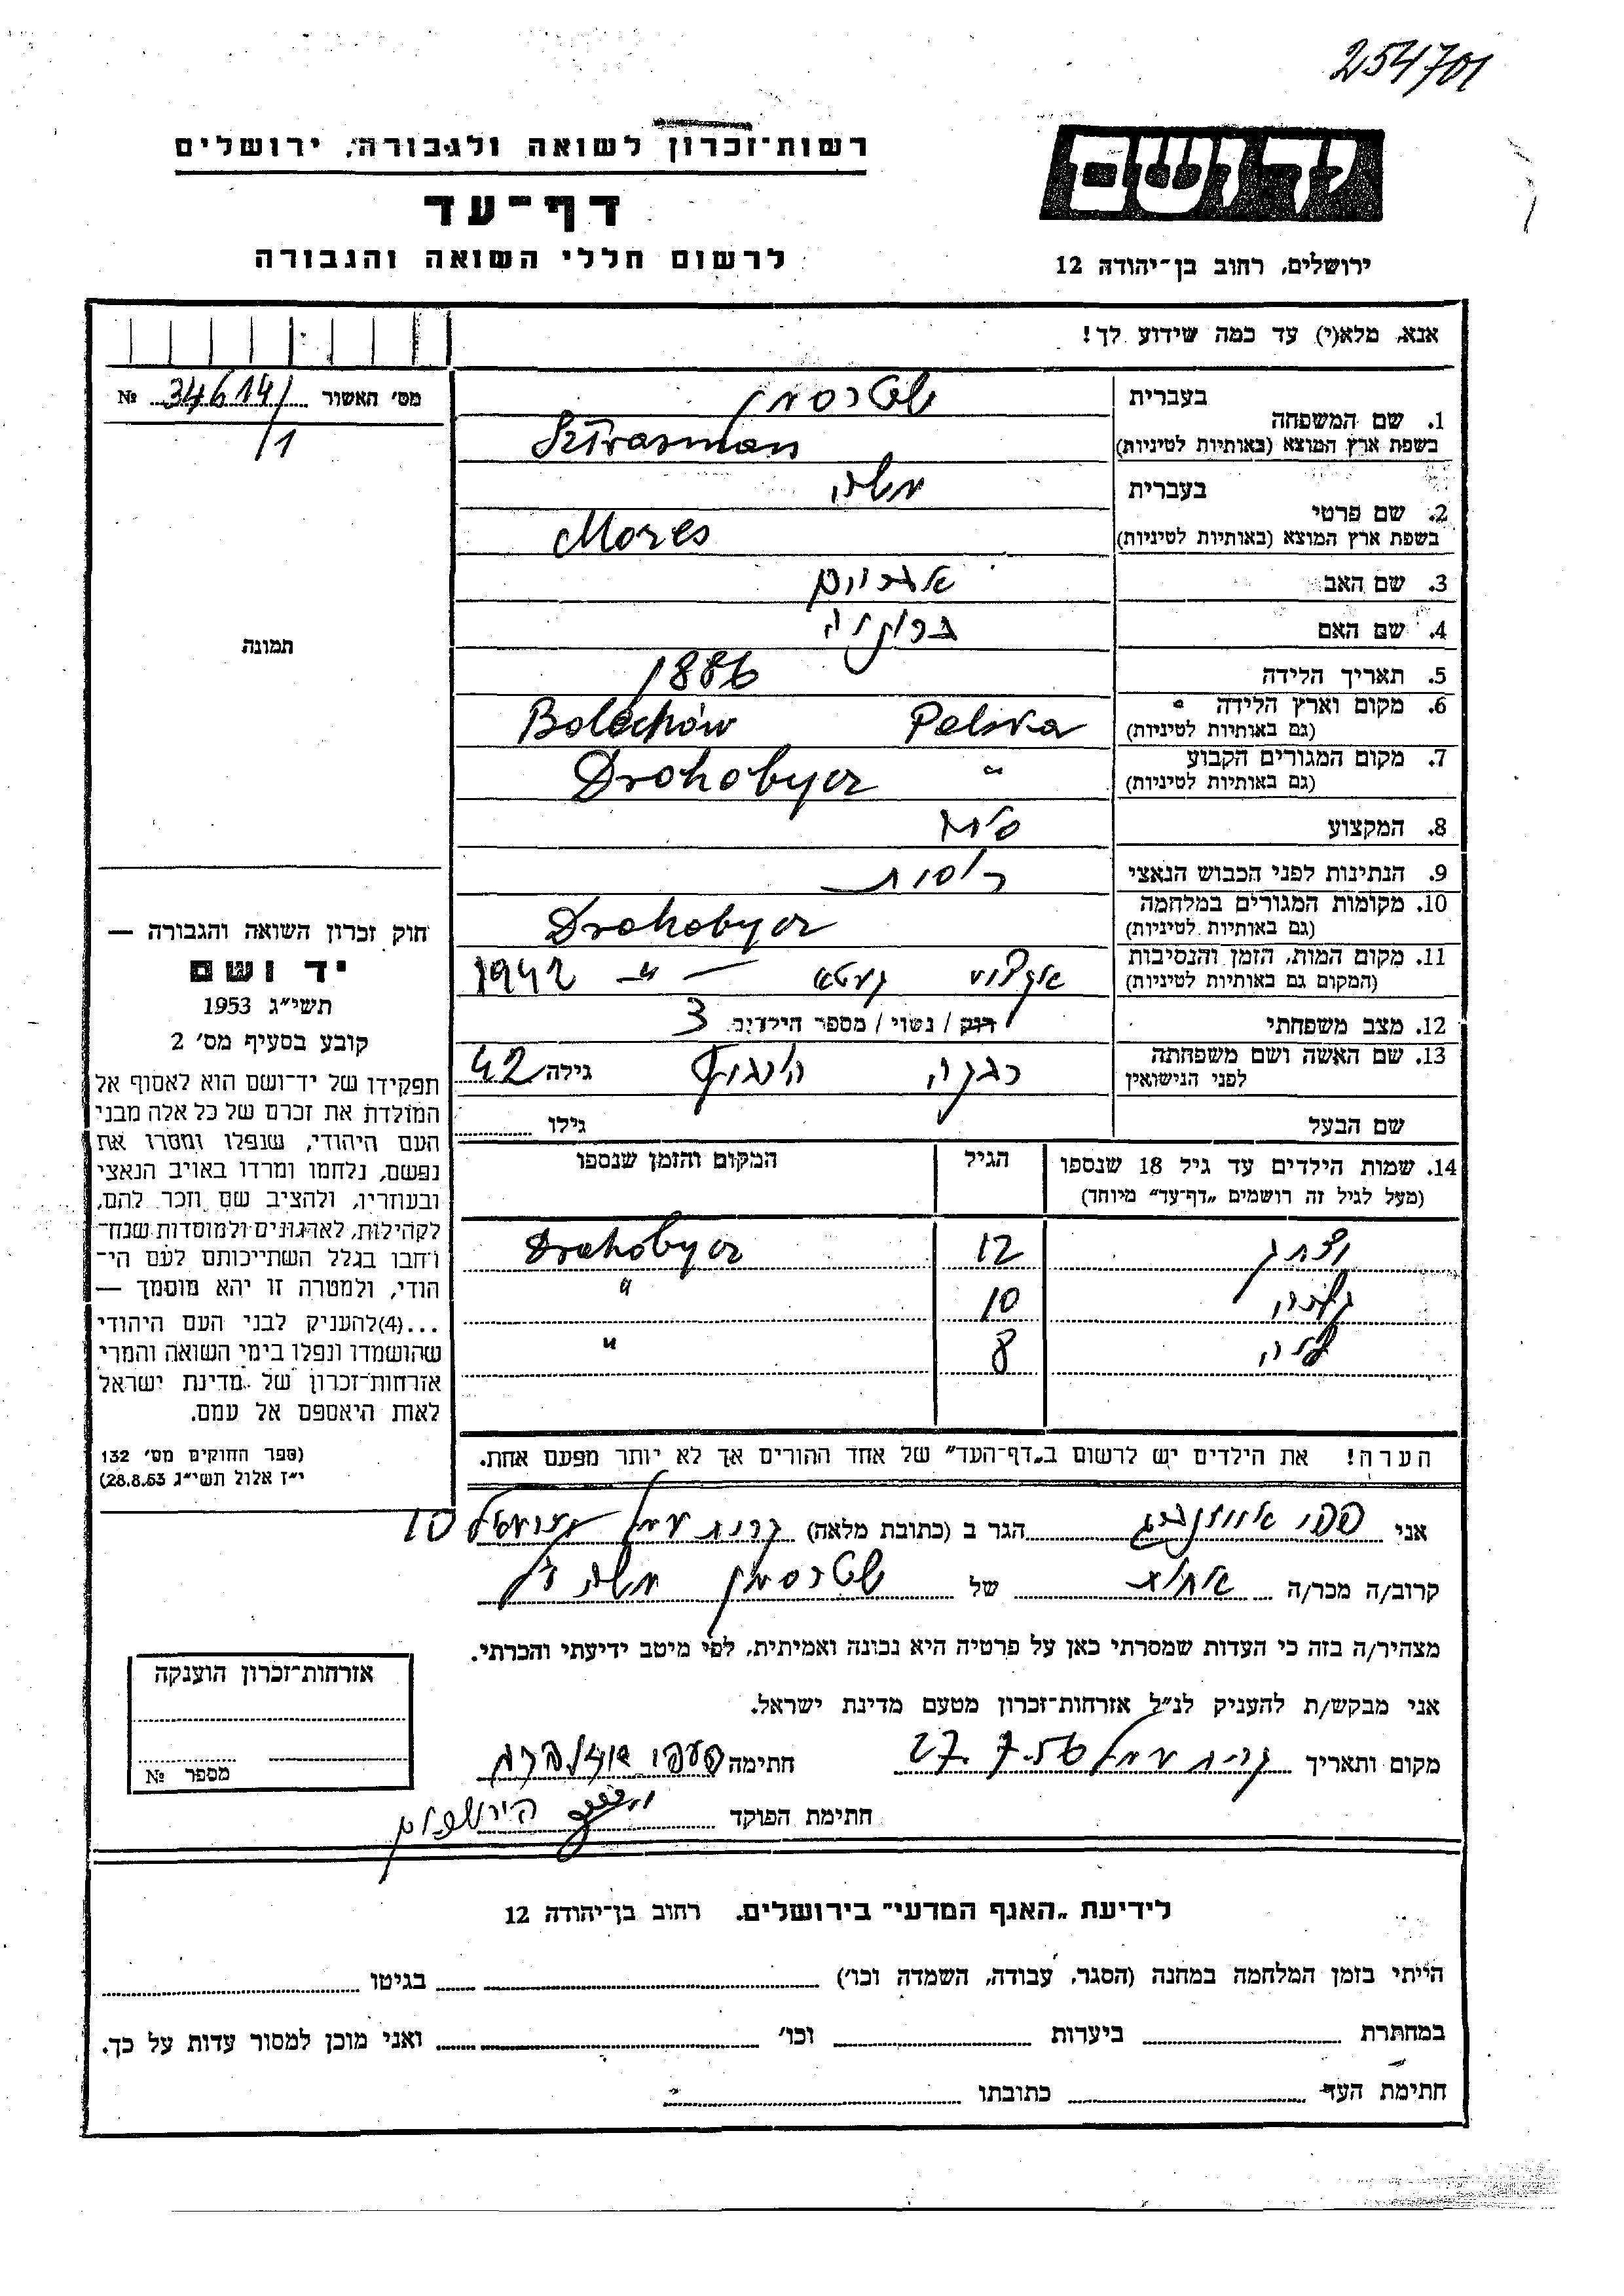 254701
רשות־זכרון לשואה ולגבורה, ירושלים
דף־עד
לרשום חללי השואה והגבורה
יד ושם
ירושלים, רחוב בן־יהודה 12
אנא, מלא(י) עד כמה שידוע לך!
מס׳ האשור 34614/ №
/1
תמונה
1. שם המשפחה
בעברית שטרסמן
בשפת ארץ המוצא (באותיות לטיניות) Sztrasman
2. שם פרטי
בעברית משה
בשפת ארץ המוצא (באותיות לטיניות) Mozes
3. שם האב
4. שם האם
5. תאריך הלידה 1886
6. מקום וארץ הלידה Bolechów Polska
(גם באותיות לטיניות)
7. מקום המגורים הקבוע Drohobycz "
(גם באותיות לטיניות)
8. המקצוע
9. הנתינות לפני הכבוש הנאצי
10. מקומות המגורים במלחמה Drohobycz
(גם באותיות לטיניות)
11. מקום המות, הזמן והנסיבות גטא — " — 1942
(המקום גם באותיות לטיניות)
12. מצב משפחתי רוק / נשוי / מספר הילדים 3
13. שם האשה ושם משפחתה רבקה גילה 42
לפני הנישואין
שם הבעל גילו
14. שמות הילדים עד גיל 18 שנספו הגיל המקום והזמן שנספו
(מעל לגיל זה רושמים „דף־עד״ מיוחד)
12 Drohobycz
10 "
8 "
הערה! את הילדים יש לרשום ב„דף־העד״ של אחד ההורים אך לא יותר מפעם אחת.
חוק זכרון השואה והגבורה —
יד ושם
תשי״ג 1953
קובע בסעיף מס׳ 2
תפקידו של יד־ושם הוא לאסוף אל
המולדת את זכרם של כל אלה מבני
העם היהודי, שנפלו ומסרו את
נפשם, נלחמו ומרדו באויב הנאצי
ובעוזריו, ולהציב שם וזכר להם,
לקהילות, לארגונים ולמוסדות שנח־
רחבו בגלל השתייכותם לעם הי־
הודי, ולמטרה זו יהא מוסמך —
...(4)להעניק לבני העם היהודי
שהושמדו ונפלו בימי השואה והמרי
אזרחות־זכרון של מדינת ישראל
לאות היאספם אל עמם.
(ספר החוקים מס׳ 132
י״ז אלול תשי״ג 28.8.53)
אני הגר ב (כתובת מלאה) קרית עמל 10
קרוב/ה מכר/ה של שטרסמן משה ז״ל
מצהיר/ה בזה כי העדות שמסרתי כאן על פרטיה היא נכונה ואמיתית, לפי מיטב ידיעתי והכרתי.
אני מבקש/ת להעניק לנ״ל אזרחות־זכרון מטעם מדינת ישראל.
מקום ותאריך קרית עמל 27.7.56 חתימה
חתימת הפוקד
אזרחות־זכרון הוענקה
מספר №
לידיעת „האגף המדעי״ בירושלים. רחוב בן־יהודה 12
הייתי בזמן המלחמה במחנה (הסגר, עבודה, השמדה וכו׳) בגיטו
במחתרת ביערות וכו׳ ואני מוכן למסור עדות על כך.
חתימת העד כתובתו